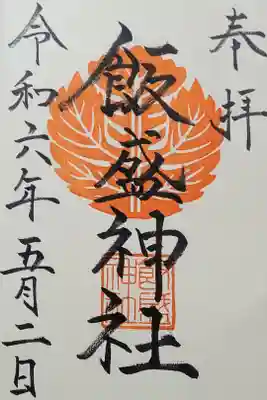 奉拝
飯盛神社
令和六年五月二日